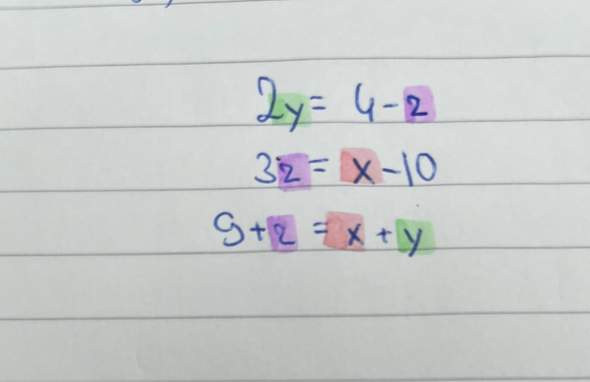 2y = 4 - z
3z = x - 10
9 + z = x + y